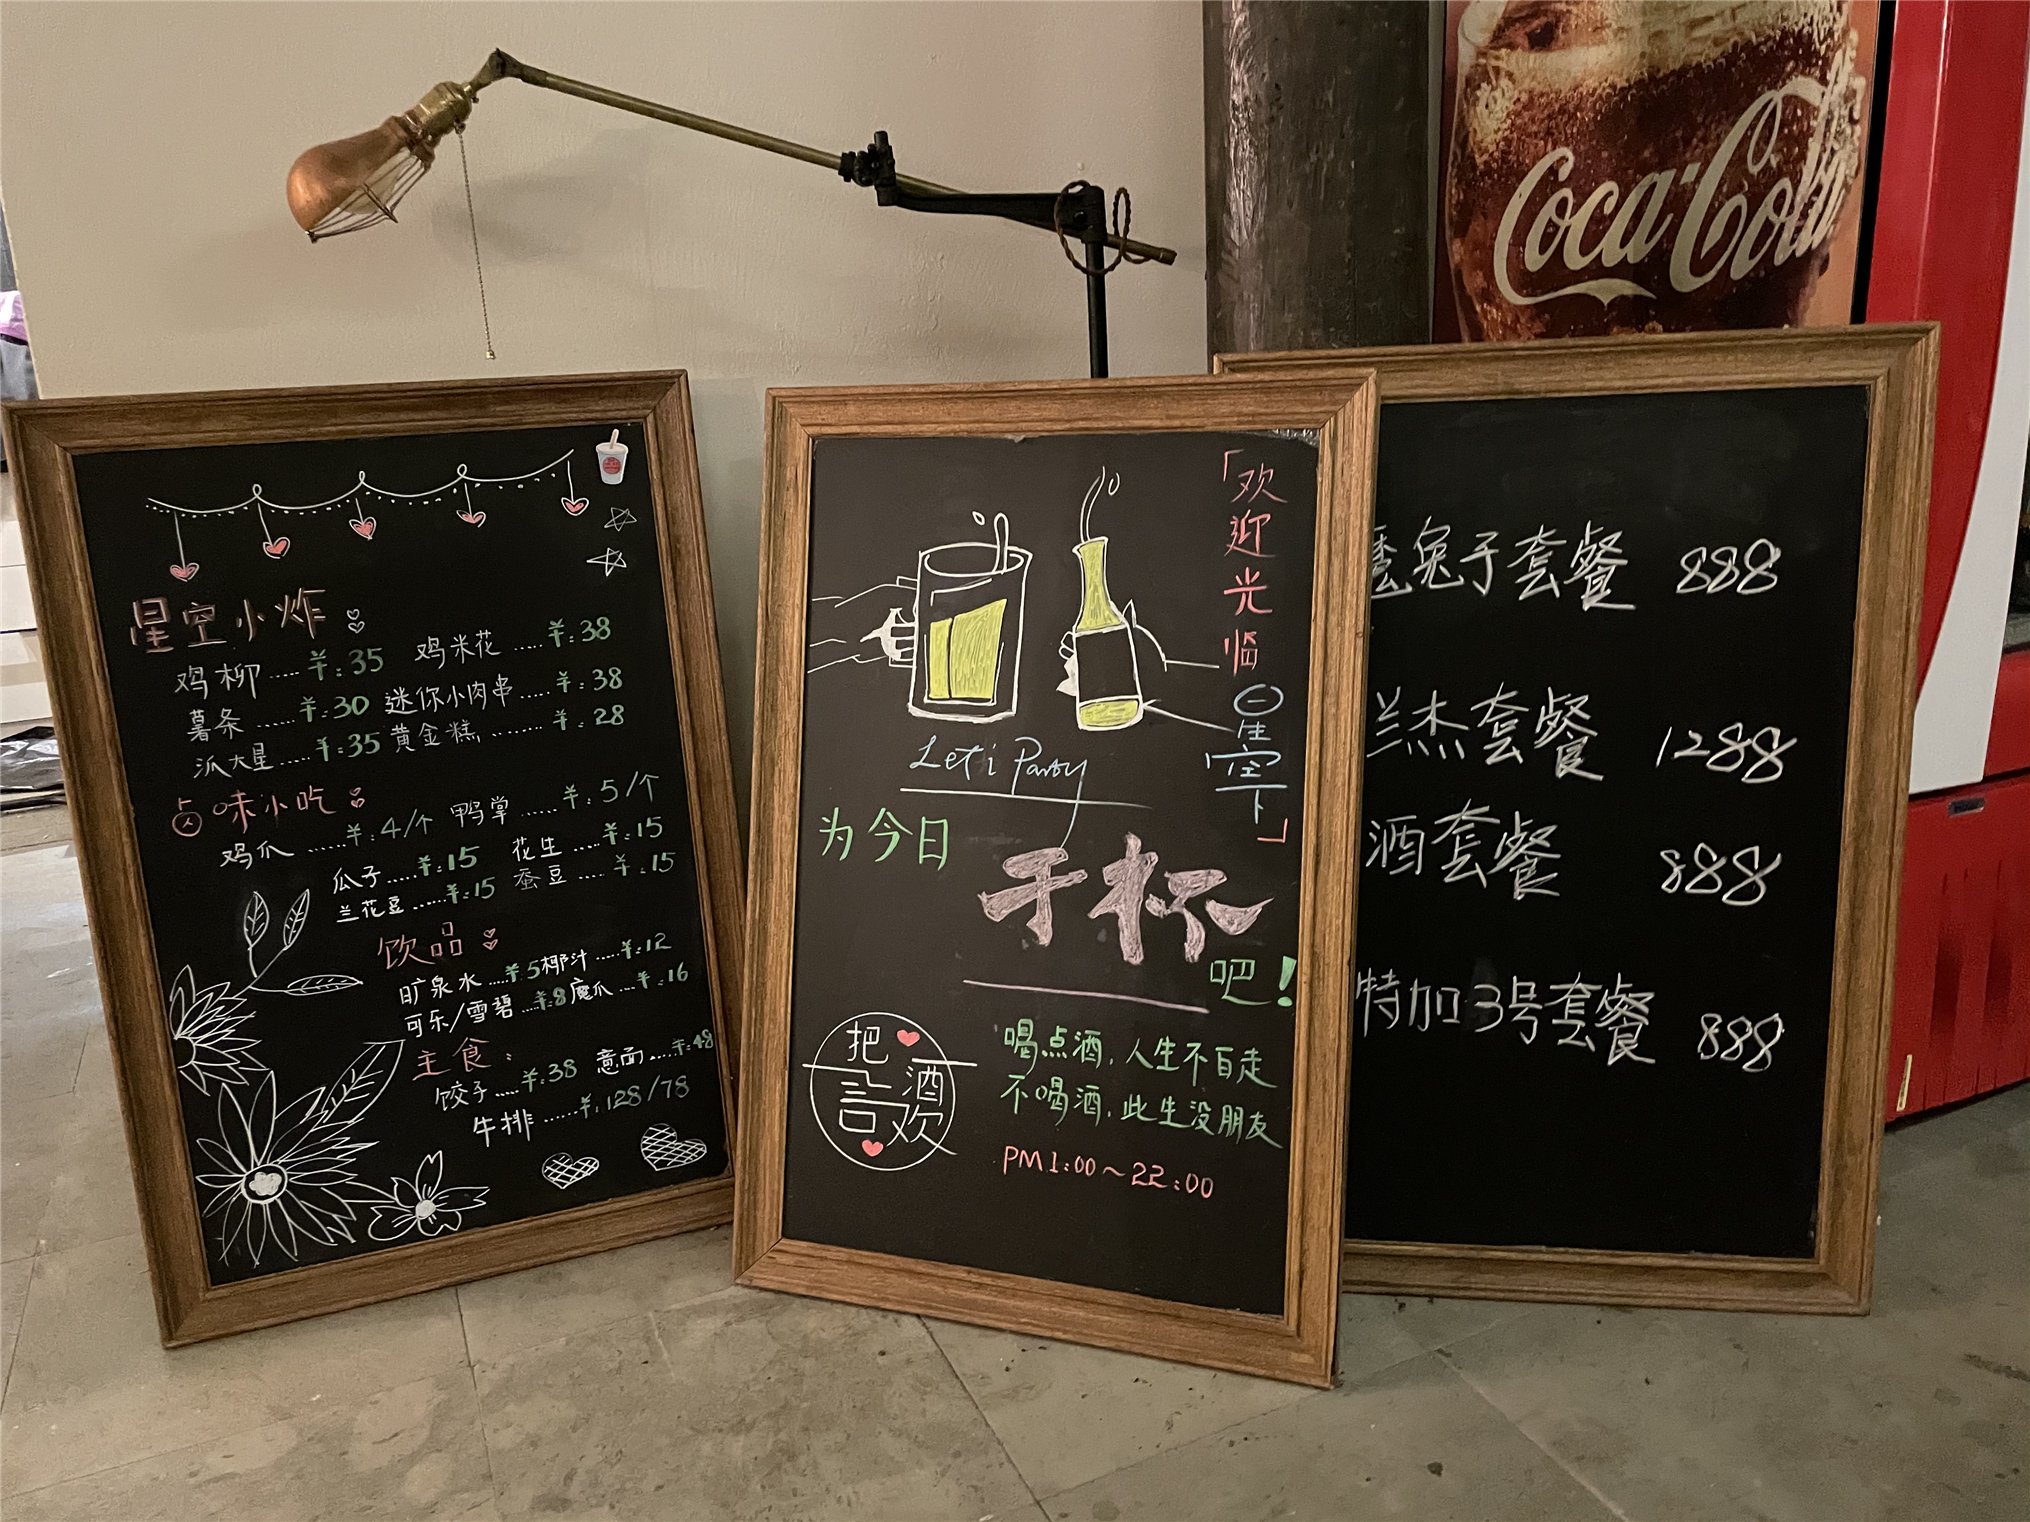 Coca-Cola
星空小炸
鸡柳……￥:35 鸡米花……￥:38
薯条……￥:30 迷你小肉串……￥:38
派大星……￥:35 黄金糕……￥:28
卤味小吃
鸡爪……￥:4/个 鸭掌……￥:5/个
瓜子……￥:15 花生……￥:15
兰花豆……￥:15 蚕豆……￥:15
饮品
旷泉水……￥:5 椰汁……￥:12
可乐/雪碧……￥:8 魔爪……￥:16
主食:
饺子……￥:38 意面……￥:48
牛排……￥:128/78
「欢迎光临星空下」
Let's Party
为今日
干杯
吧!
把酒言欢
喝点酒,人生不白走
不喝酒,此生没朋友
PM1:00~22:00
魔兔子套餐 888
兰杰套餐 1288
酒套餐 888
特加3号套餐 888